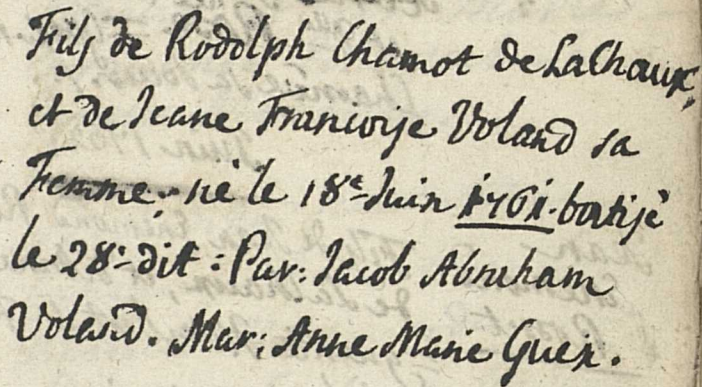 Fils de Rodolph Chamot de LaChaux,
et de Jeane Francoise Voland sa
Femme - né le 18e Juin 1761. batisé
le 28e dit : Par: Jacob Abraham
Voland. Mar: Anne Marie Guex.